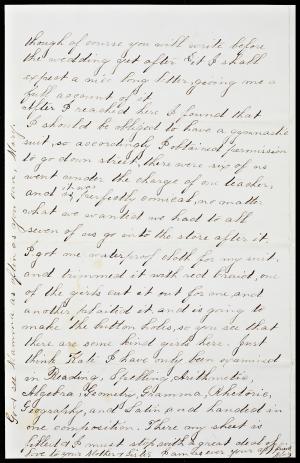 though of course you will write before
the wedding yet after it I shall
expect a nice long letter, giving me a
full account of it.
After I reached here I found that
I should be obliged to have a gymnastic
suit, so accordingly I obtained permission
to go down street, there were six of us
went under the charge of one teacher,
and it was perfectly comical, no matter
what we wanted we had to all
seven of us go into the store after it.
I got me waterproof cloth for my suit,
and trimmed it with red braid, one
of the girls cut it out for me, and
another plaited it, and is going to
make the button holes, so you see that
there are some kind girls here. Just
think Kate I have only been examined
in Reading, Spelling, Arithmetic,
Algebra, Geometry, Grammar, Rhetoric,
Geography, and Latin and handed in
one composition. There my sheet is
filled & I must stop with a great deal of
love to your Mother & I am as ever your aff friend
Go & see Mamma as often as you can, Mary